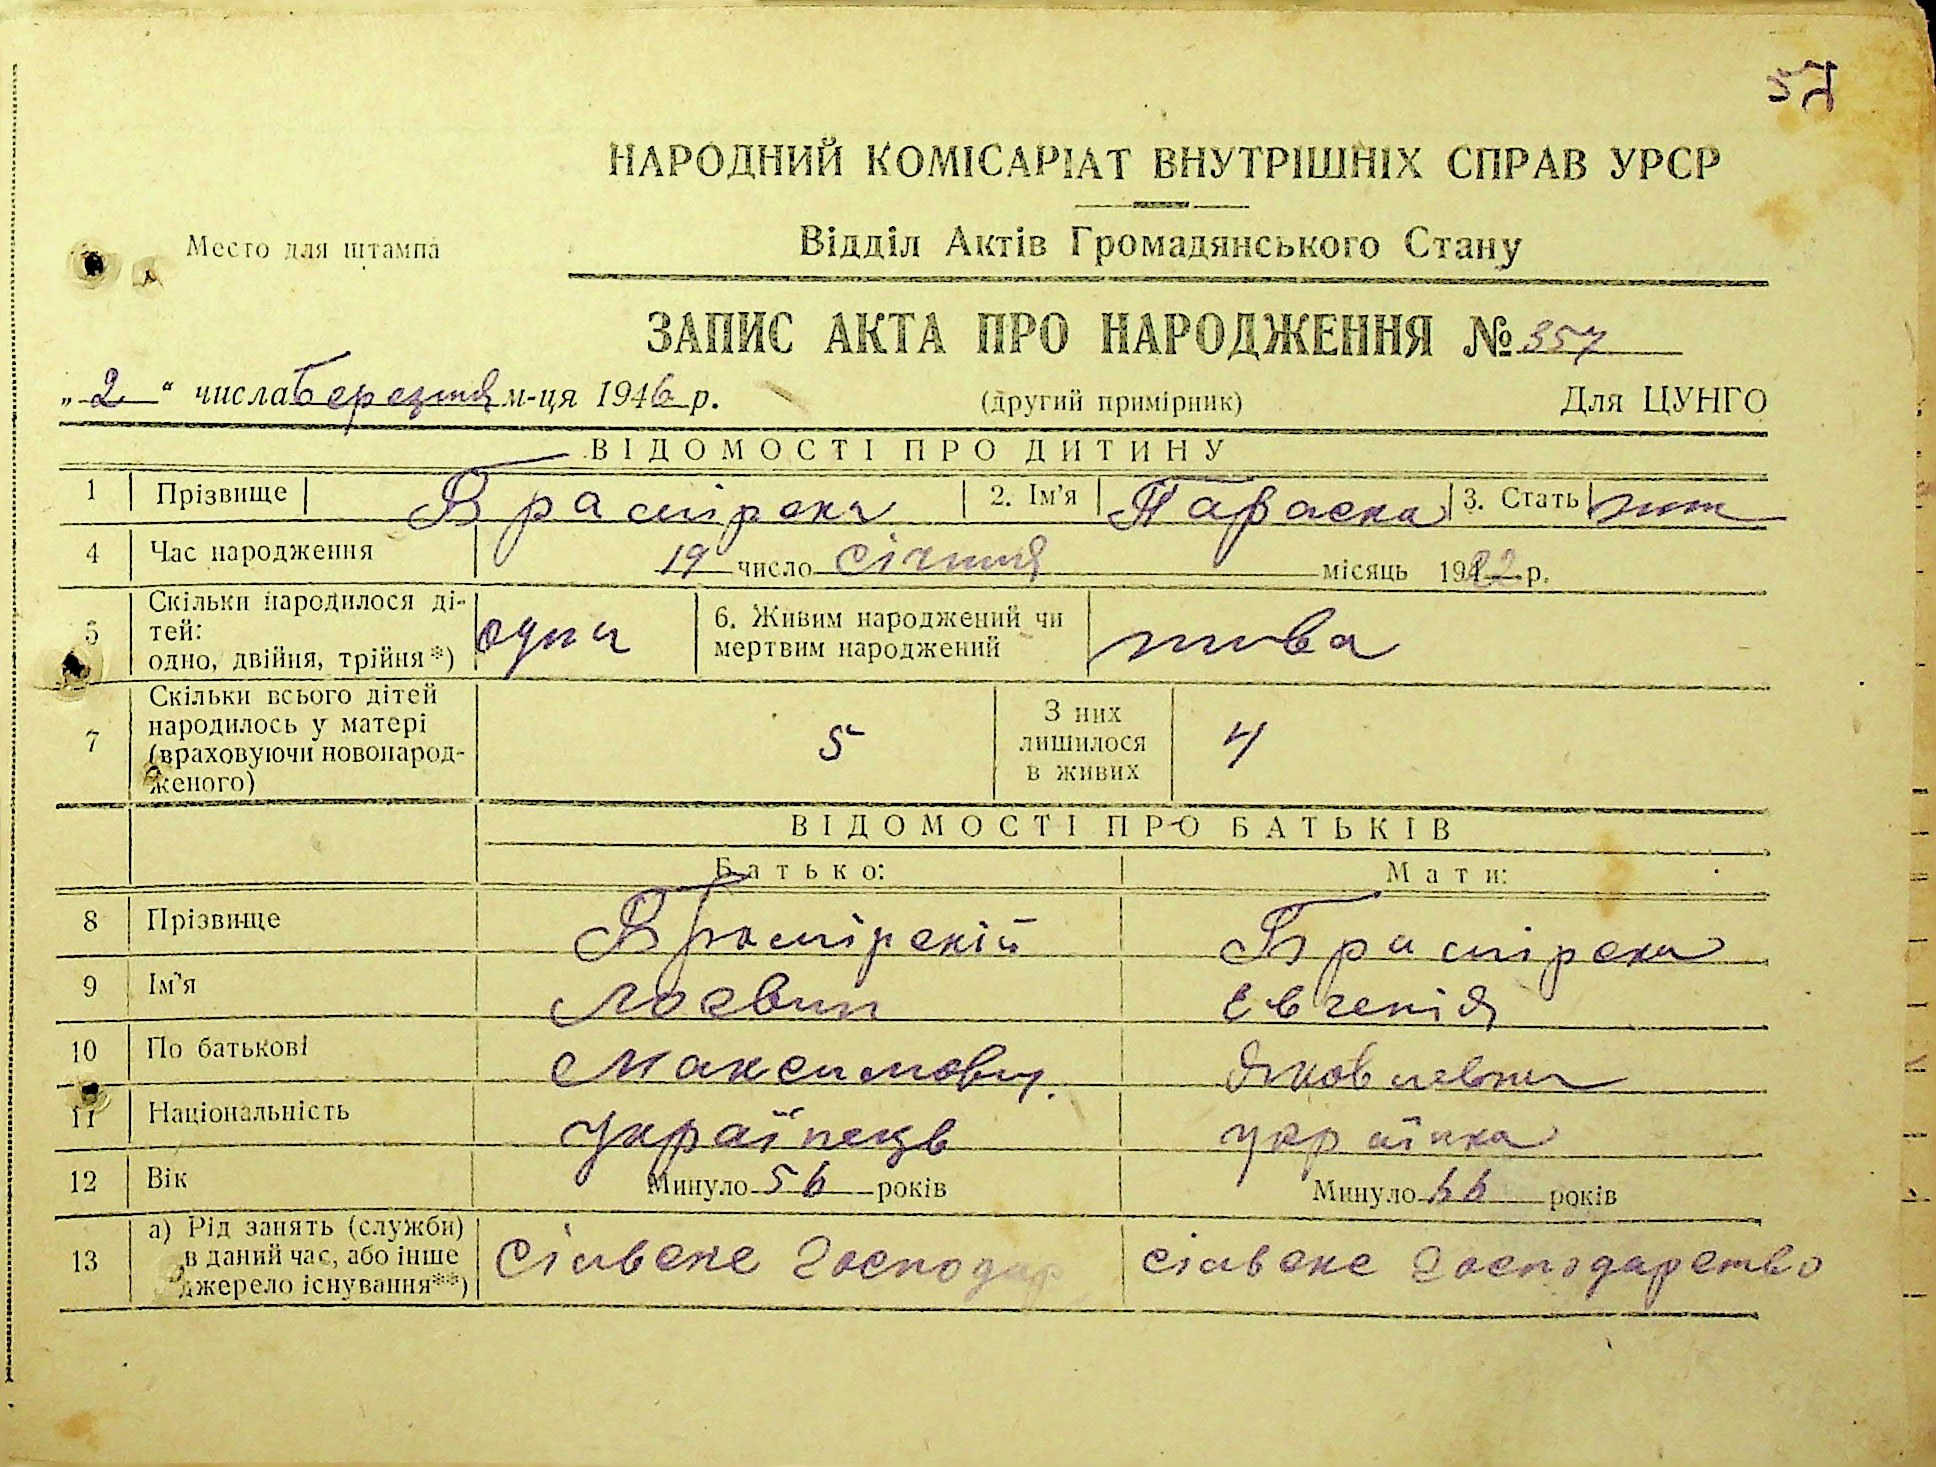 57
НАРОДНИЙ КОМІСАРІАТ ВНУТРІШНІХ СПРАВ УРСР
Место для штампа
Відділ Актів Громадянського Стану
ЗАПИС АКТА ПРО НАРОДЖЕННЯ № 357
„2“ числа Березня м-ця 1946 р. (другий примірник) Для ЦУНГО
ВІДОМОСТІ ПРО ДИТИНУ
1 Прізвище 2. Ім'я Параска 3. Стать жін
4 Час народження 19 число січня місяць 1922 р.
5 Скільки народилося дітей: одно, двійня, трійня*) одна 6. Живим народжений чи мертвим народжений жива
7 Скільки всього дітей народилось у матері (враховуючи новонародженого) 5 З них лишилося в живих 4
ВІДОМОСТІ ПРО БАТЬКІВ
Батько: Мати:
8 Прізвище
9 Ім'я Евгенія
10 По батькові Максимович. Яковлевна
11 Національність українець українка
12 Вік Минуло 56 років Минуло років
13 а) Рід занять (служби) в даний час, або інше джерело існування**) сільське господар сільське господарство